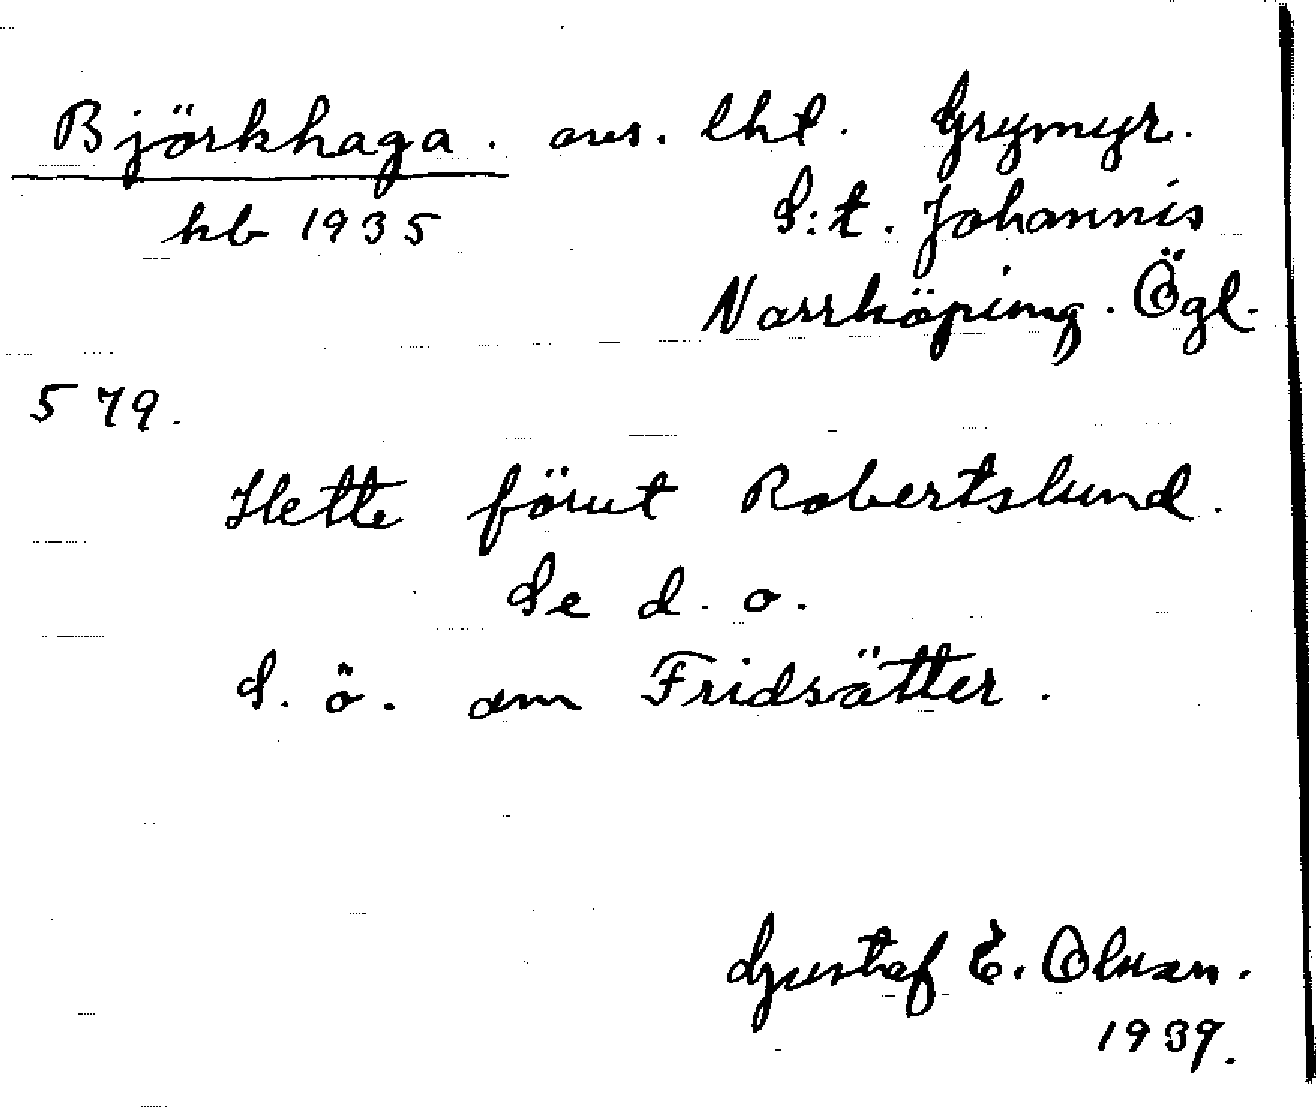 Björkhaga. avs. lht. Grymyr.
kb 1935 S:t. Johannis
Norrköping. Ögl.
579.
Hette förut Robertslund.
Se d. o.
S. ö. om Fridsätter.
Gustaf E. Olsson.
1939.